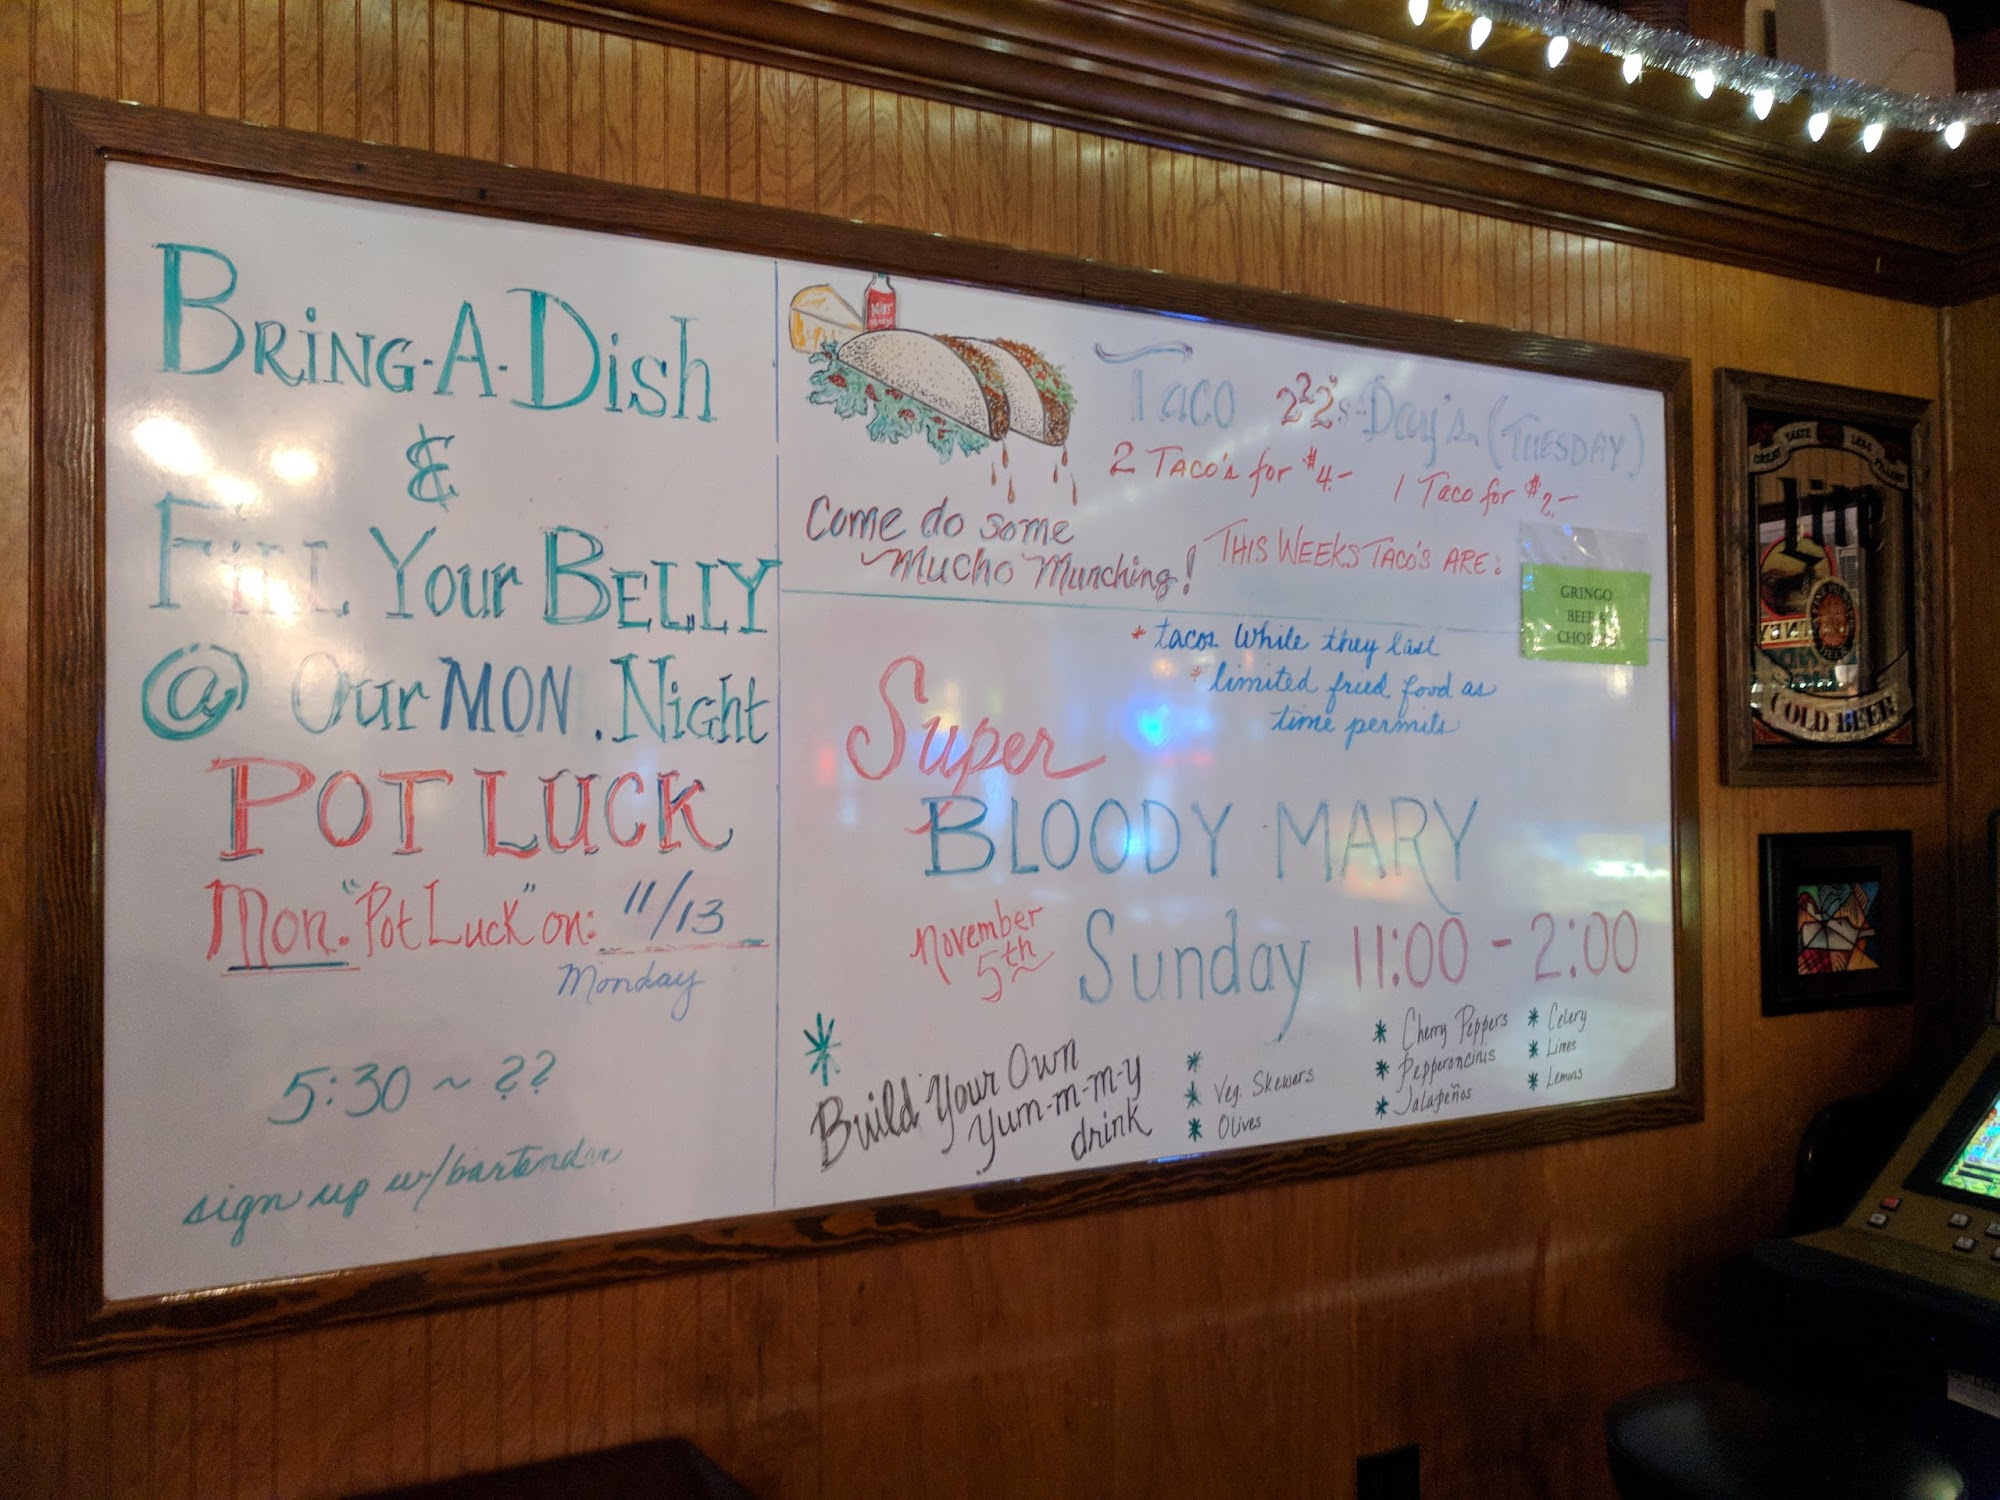 BRING-A-DISH
&
FILL YOUR BELLY
@ OUR MON. NIGHT
POT LUCK
Mon. "Pot Luck" on: 11/13
Monday
5:30 ~ ??
sign up w/bartender
HOT
TACO 2 2 2's-Day's. (TUESDAY)
2 TACO'S for $4.- 1 Taco for $2.-
Come do some
Mucho Munching!
THIS WEEKS TACO'S ARE:
GRINGO
BEEF &
CHORIZO
* tacos while they last
* limited fried food as
time permits
Super
BLOODY MARY
November
5th
Sunday 11:00 - 2:00
* Build Your Own
Yum-m-m-y
drink
*
* Veg. Skewers
* Olives
* Cherry Peppers
* Pepperoncinis
* Jalapeños
* Celery
* Limes
* Lemons
GREAT TASTE LESS FILLING
Lite
COLD BEER